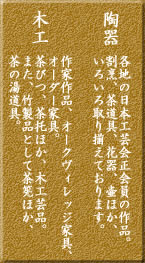 陶器
各地の日本工芸会正会員の作品。
割烹、茶道具、花器、壷ほか、
いろいろ取り揃えております。
木工
作家作品、オークヴィレッジ家具、
オーダー家具。
茶びつ、茶托ほか、木工芸品。
また、竹製品として茶筅ほか、
茶の湯道具。